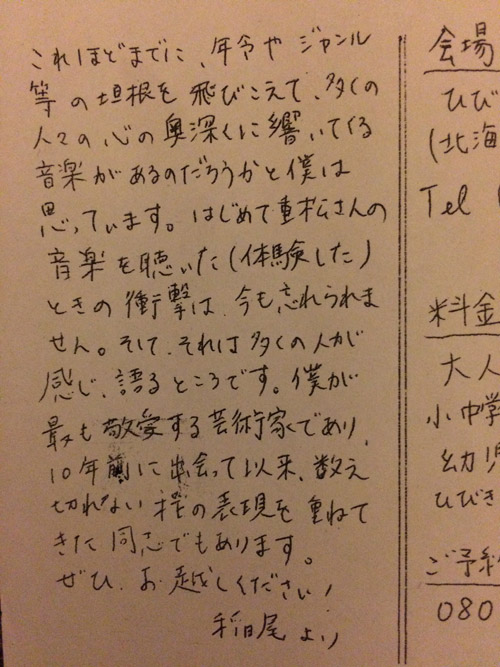 これほどまでに、年令や ジャンル
等 の 垣根を 飛びこえて、多くの
人々の 心の 奥深くに 響いてくる
音楽が あるのだろうかと 僕は
思っています。はじめて 重松さんの
音楽 を 聴いた (体験した)
ときの 衝撃は、今も 忘れられま
せん。そして、それは 多くの 人が
感じ、語る ところです。僕が
最も 敬愛する 芸術家であり、
10年前に 出会って以来、数え
切れない 程の 表現を 重ねて
きた 同志でもあります。
ぜひ、お越しください!
稲尾 より
会場
ひび
(北海
Tel
料金
大人
小中学
幼児
ひびき
ご予約
080